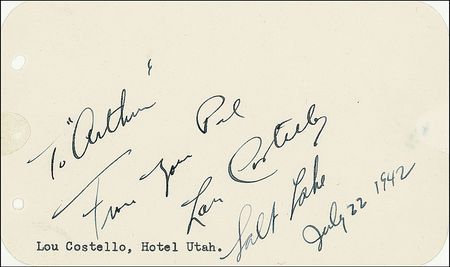 To "Arthur"
From Your Pal
Lou Costello
Salt Lake
July 22 1942
Lou Costello, Hotel Utah.